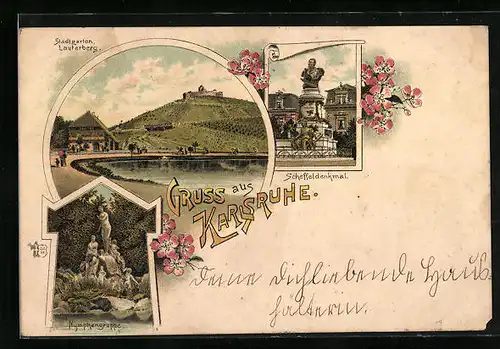 Stadtgarten,
Lauterberg.
Scheffeldenkmal.
GRUSS aus
KARLSRUHE.
Nymphengruppe.
Deine Dichliebende Haus
hälterin.